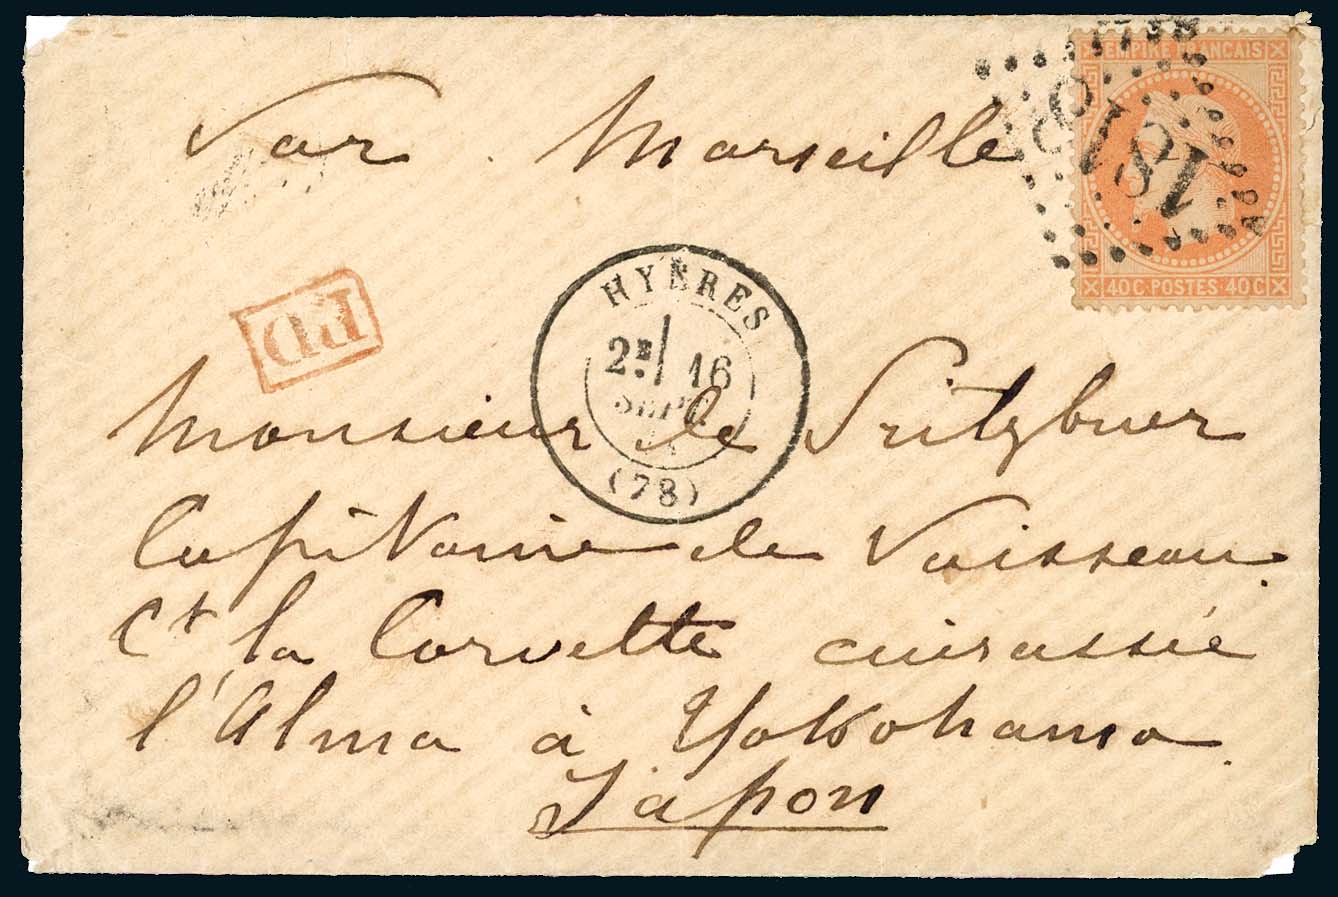 Par Marseille
EMPIRE FRANÇAIS
1818
40C·POSTES·40C
PD
HYÈRES
2E/ 16
SEPT.
(78)
Monsieur de
Capitaine de Vaisseau
Ct la Corvette cuirassée
l'Alma à Yokohama
Japon